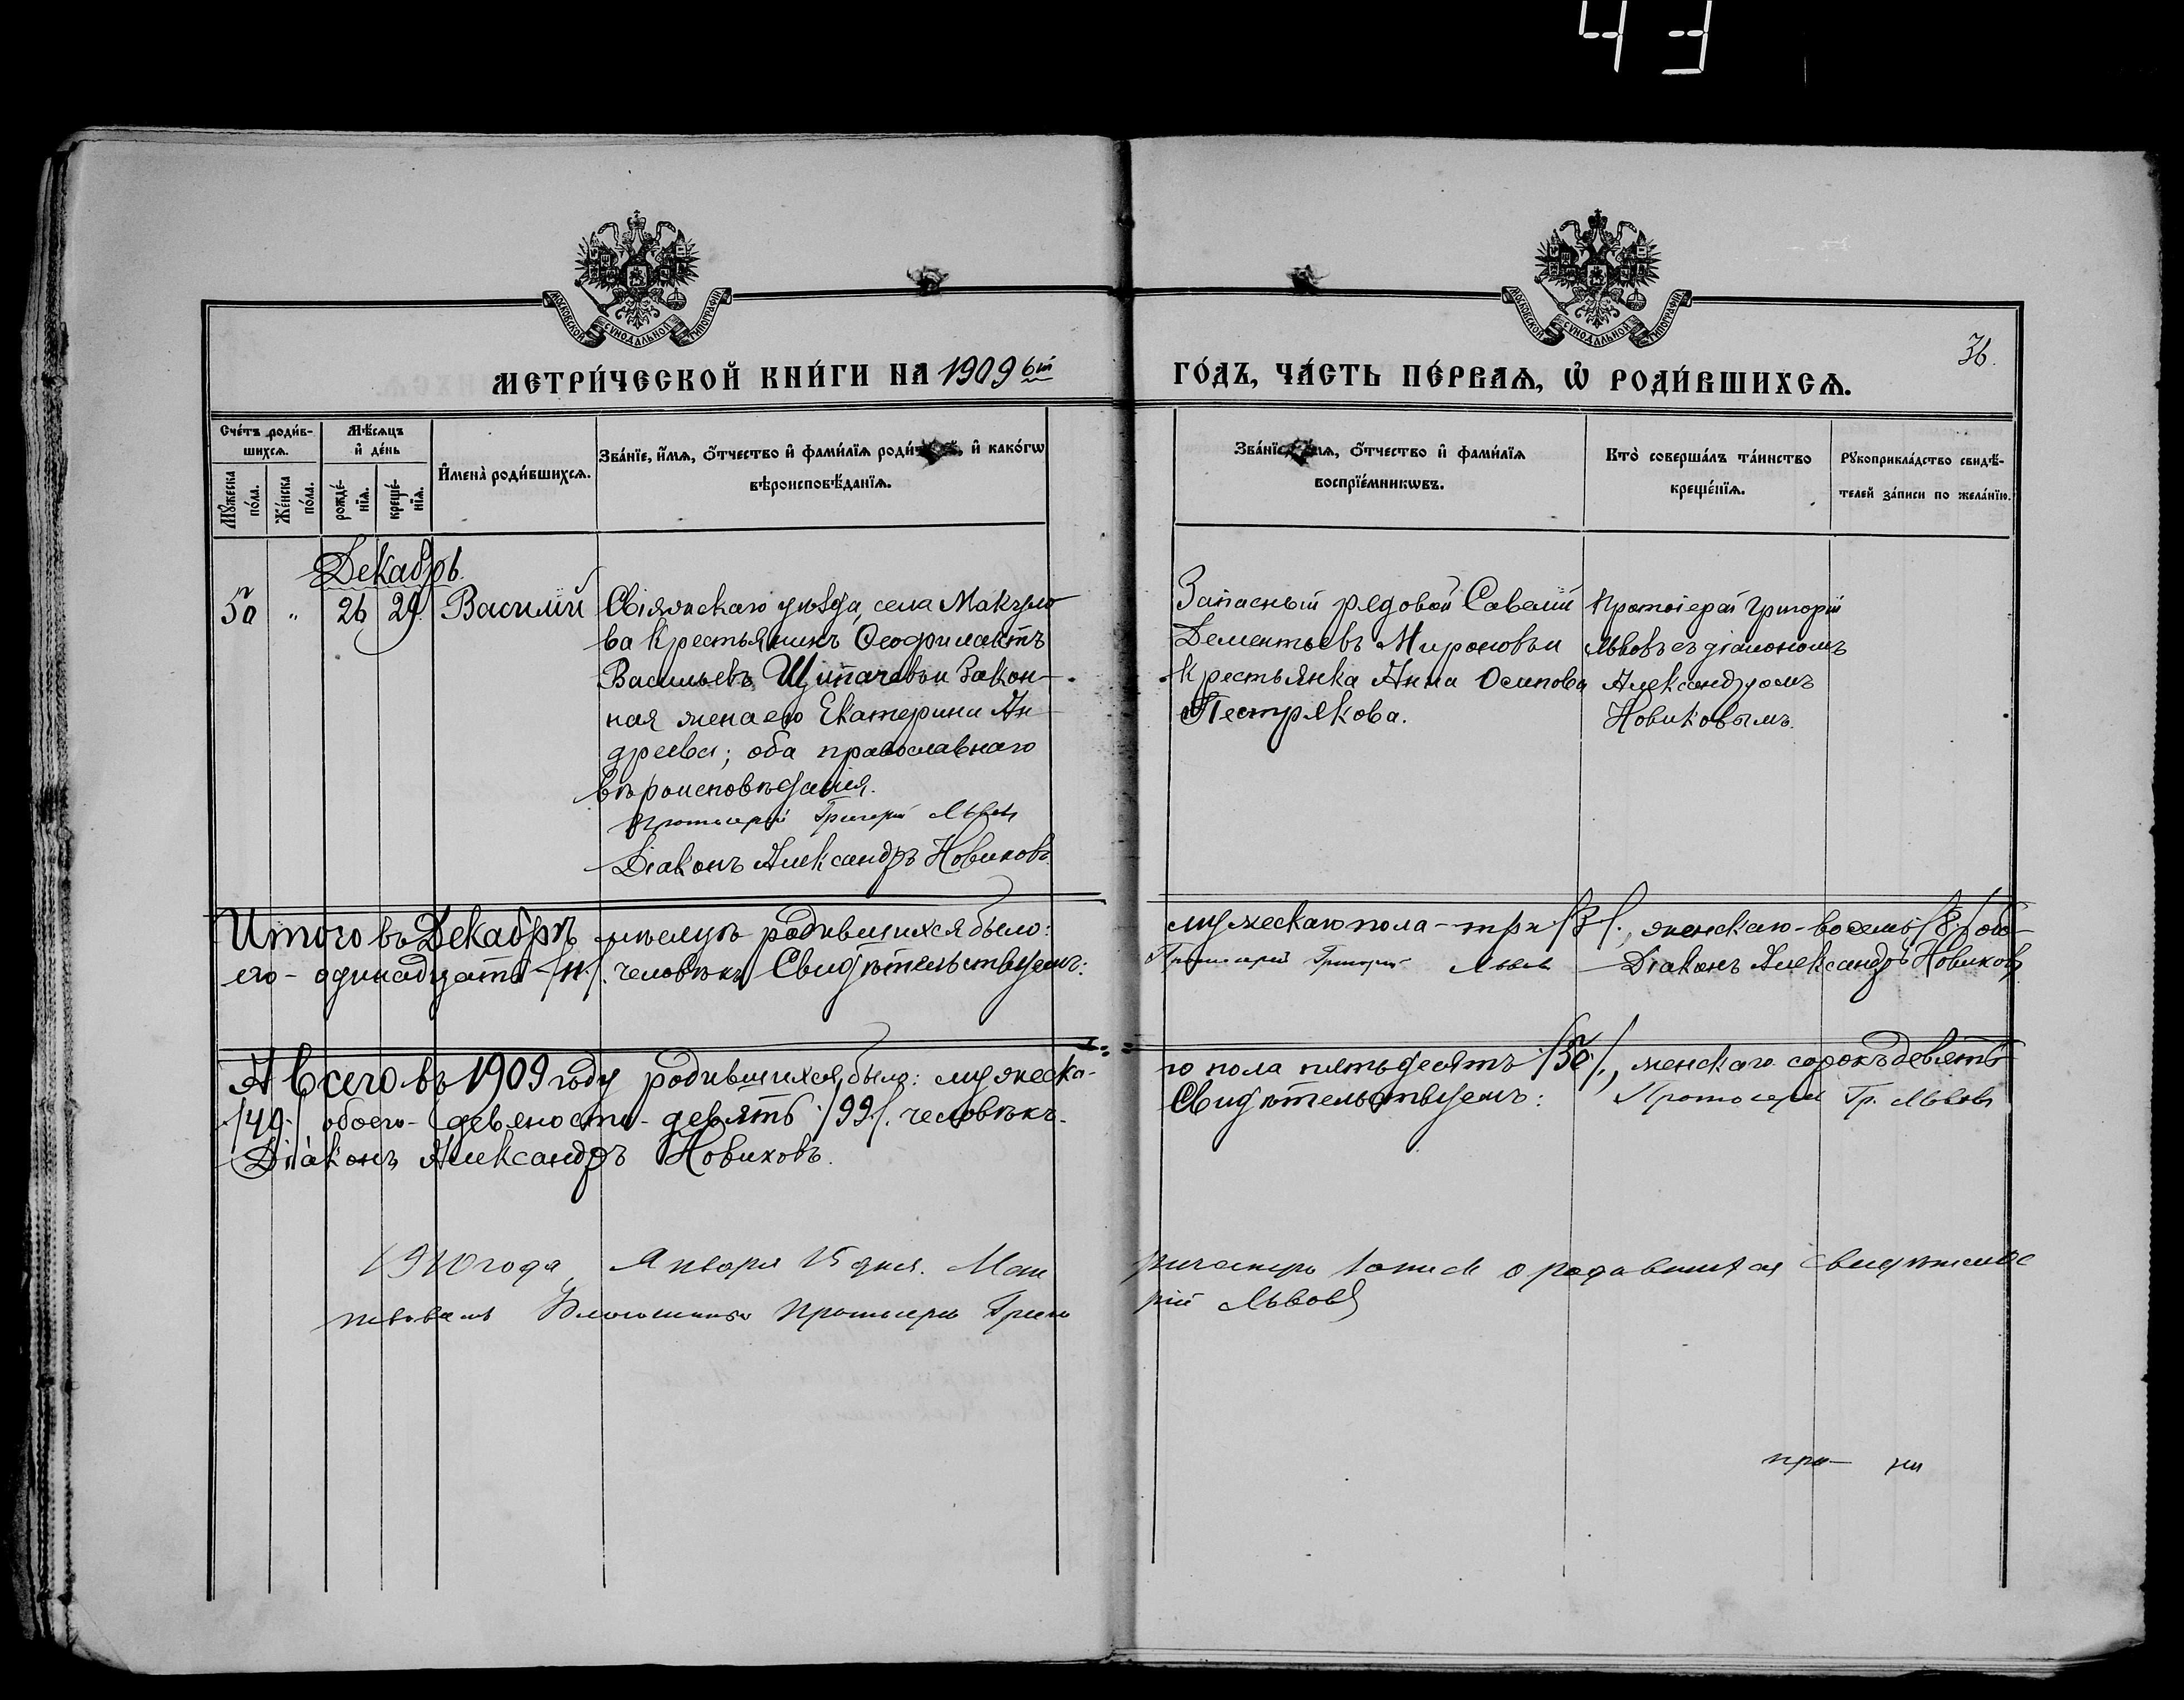 43
МОСКОВСКОЙ СѴНОДАЛЬНОЙ ТИПОГРАФІИ
МОСКОВСКОЙ СѴНОДАЛЬНОЙ ТИПОГРАФІИ
36.
МЕТРИ́ЧЕСКОЙ КНИ́ГИ НА 1909 ый ГО́ДЪ, ЧА́СТЬ ПЕ́РВАѦ, Ѡ҆ РОДИ́ВШИХСѦ.
Сче́тъ роди́в-
шихсѧ.
Мꙋ́жеска по́ла.
Же́нска по́ла.
Мѣ́сѧцъ
и҆ де́нь
рожде́-
нїѧ.
креще́-
нїѧ.
И҆мена̀ роди́вшихсѧ.
Зва́нїе, и҆́мѧ, ѻ҆́тчество и҆ фами́лїѧ и҆ како́гѡ
вѣроисповѣ́данїѧ.
ѻ҆́тчество и҆ фами́лїѧ
воспрїе́мникѡвъ.
Кто̀ соверша́лъ та́инство
креще́нїѧ.
Рꙋкоприкла́дство свидѣ́-
телей за́писи по жела́нїю.
Декабрь.
50 " 26 29. Василій
Свіяжскаго уѣзда, села Макуло-
ва крестьянинъ Ѳеофилактъ
Васильевъ Щипачевъ и Закон-
ная жена его Екатерина Ан-
дреева; оба православнаго
вѣроисповѣданія.
Протоіерей Григорій Львовъ
Діаконъ Александръ Новиковъ.
Запасный рядовой Савелій
Дементьевъ Мироновъ и
крестьянка Анна Осипова
Пестрякова.
Протоіерей Григорій
Львовъ съ діакономъ
Александромъ
Новиковымъ.
Итого въ Декабрѣ мѣсяцѣ родившихся было: мужескаго пола - три /3/., женскаго - восемь /8./ обо-
его - одинадцать /11./. человѣкъ Свидѣтельствуемъ: Протоіерей Григорій Львовъ Діаконъ Александръ Новиковъ.
А всего въ 1909 году родившихся было: мужеска-го пола пятьдесятъ /50/., женскаго сорокъ девять
/49./ обоего - девяносто - девять /99/. человѣкъ. Свидѣтельствуемъ: Протоіерей Гр. Львовъ
Діаконъ Александръ Новиковъ.
1910 года Января 15 дня. рическую запись о родившихся свидѣтельс
твовалъ Благочинный Протоіерей Григо рій Львовъ